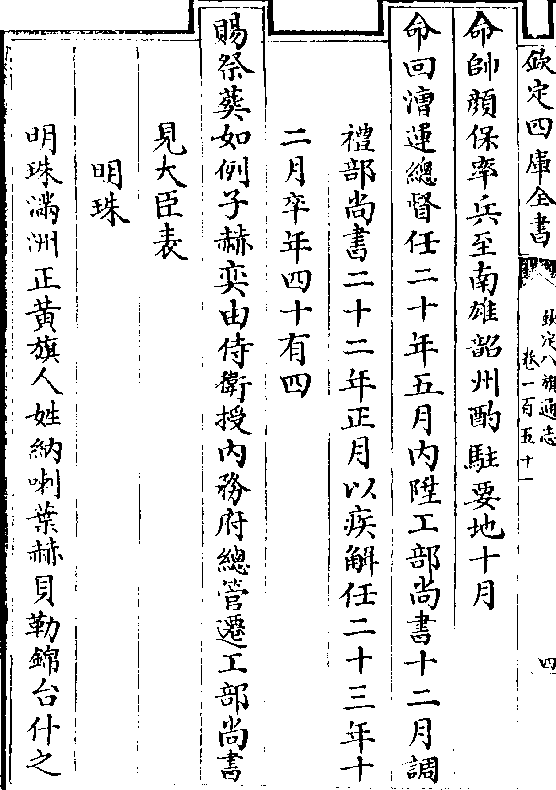 欽定四庫全書
欽定八旗通志
卷一百五十一
四
命帥顔保率兵至南雄韶州酌駐要地十月
命回漕運總督任二十年五月内陞工部尚書十二月調
禮部尚書二十二年正月以疾解任二十三年十
二月卒年四十有四
賜祭葬如例子赫奕由侍衛授内務府總管遷工部尚書
見大臣表
明珠
明珠滿洲正黄旗人姓納喇葉赫貝勒錦台什之